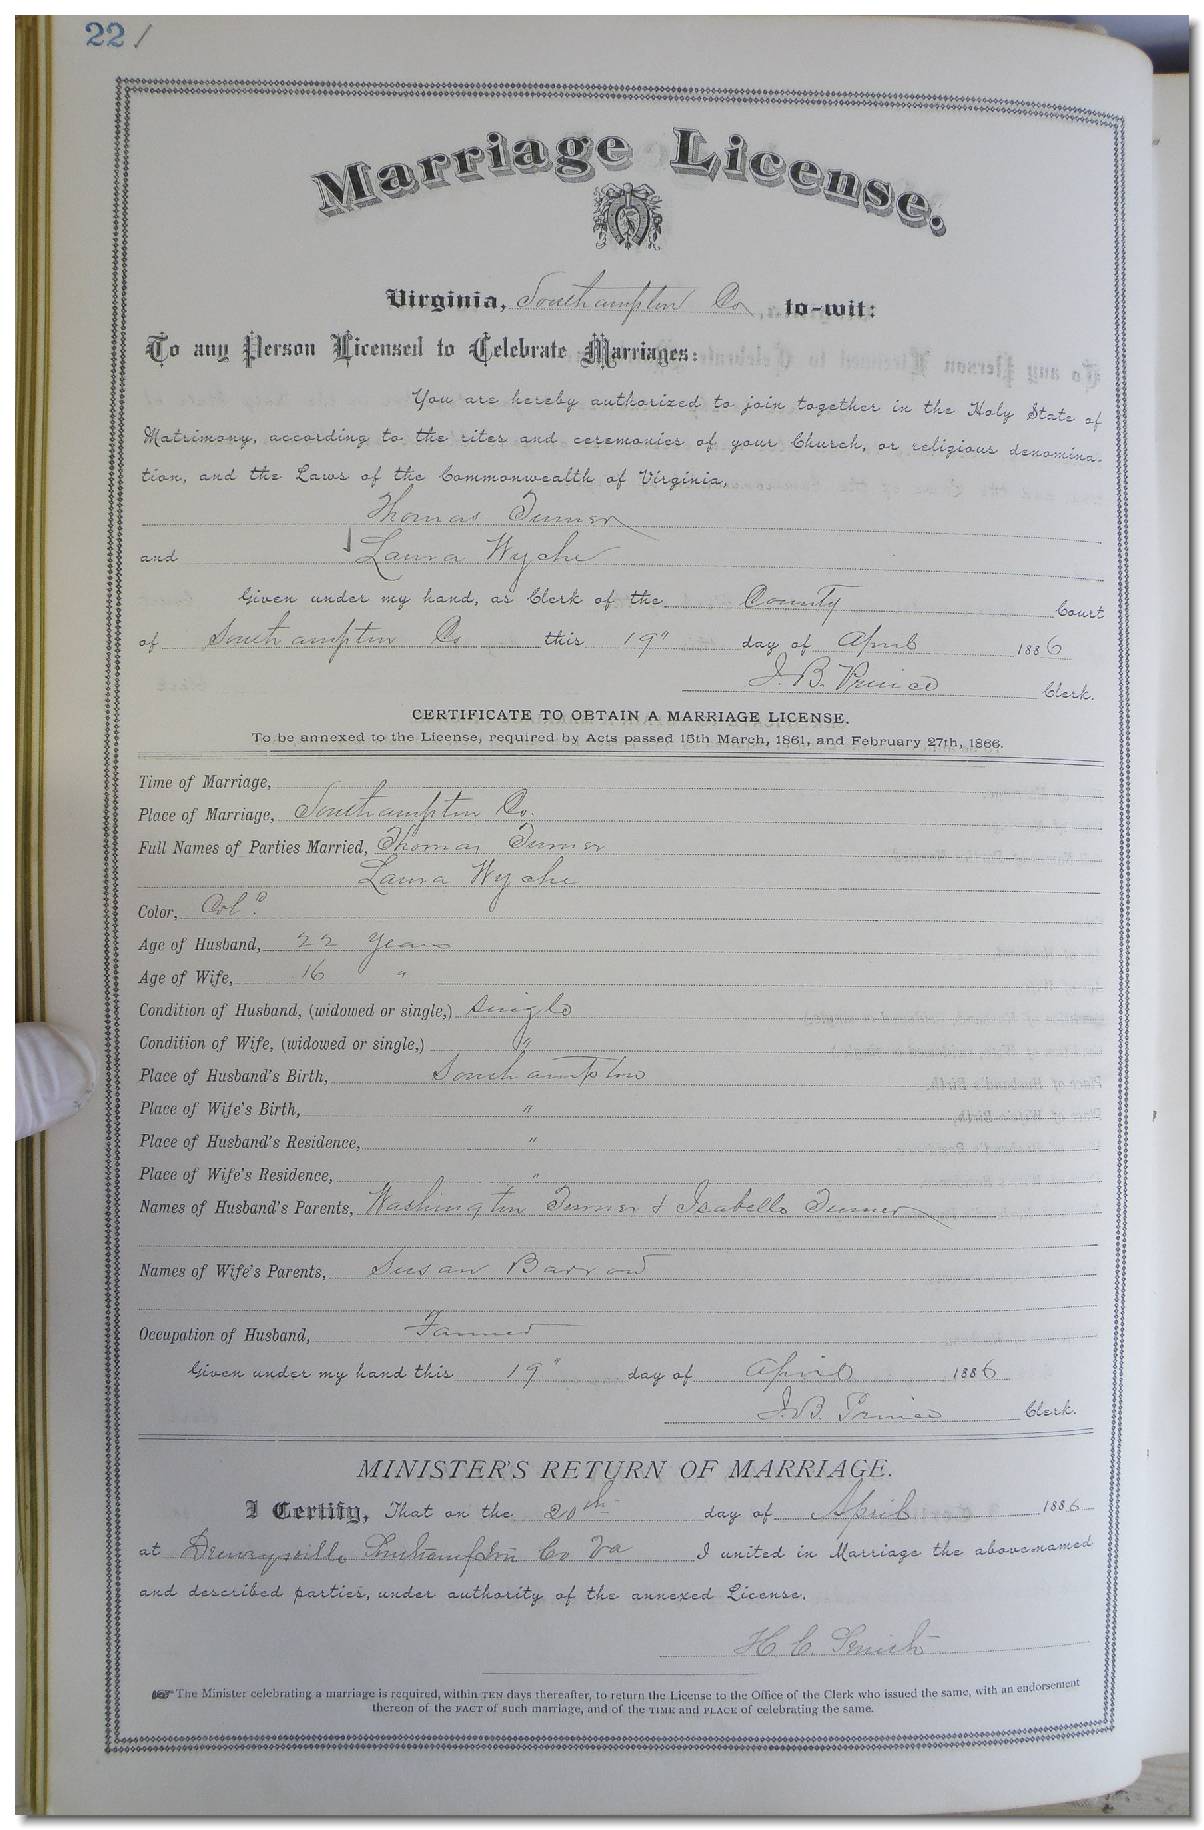 221
Marriage License.
Virginia, Southampton Co, to-wit:
To any Person Licensed to Celebrate Marriages:
You are hereby authorized to join together in the Holy State of
Matrimony, according to the rites and ceremonies of your Church, or religious denomina-
tion, and the Laws of the Commonwealth of Virginia,
Thomas Turner
and Laura Wyche
Given under my hand, as Clerk of the County Court
of Southampton Co this 19" day of April 1886
J. B. Prince Clerk.
CERTIFICATE TO OBTAIN A MARRIAGE LICENSE.
To be annexed to the License, required by Acts passed 15th March, 1861, and February 27th, 1866.
Time of Marriage,
Place of Marriage, Southampton Co.
Full Names of Parties Married, Thomas Turner
Laura Wyche
Color, Col'd.
Age of Husband, 22 years
Age of Wife, 16 "
Condition of Husband, (widowed or single,) single
Condition of Wife, (widowed or single,) "
Place of Husband's Birth, Southampton
Place of Wife's Birth, "
Place of Husband's Residence, "
Place of Wife's Residence, "
Names of Husband's Parents, Washington Turner & Isabella Turner
Names of Wife's Parents, Susan Barrow
Occupation of Husband, Farmer
Given under my hand this 19" day of April 1886
J. B. Prince Clerk.
MINISTER'S RETURN OF MARRIAGE.
I Certify, That on the 20th day of April 1886
at Drewrysville Southampton Co Va I united in Marriage the above-named
and described parties, under authority of the annexed License.
H C Smith
The Minister celebrating a marriage is required, within TEN days thereafter, to return the License to the Office of the Clerk who issued the same, with an endorsement
thereon of the FACT of such marriage, and of the TIME and PLACE of celebrating the same.